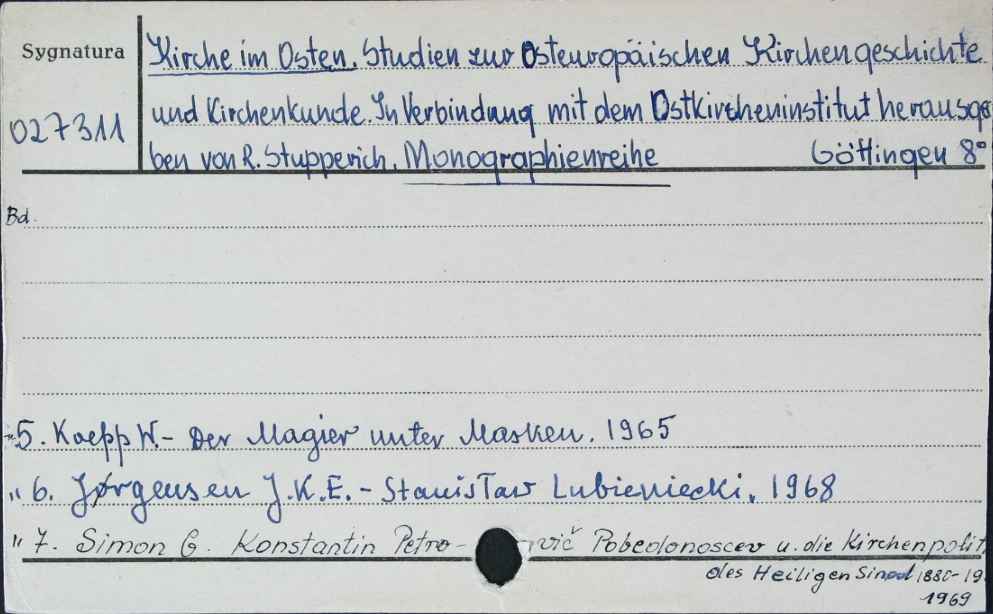 Sygnatura
027311
Kirche im Osten. Studien zur Osteuropäischen Kirchengeschichte
und Kirchenkunde. In Verbindung mit dem Ostkircheninstitut herausge
ben von R. Stupperich. Monographienreihe Göttingen 8°
Bd.
"5. Koepp W. - Der Magier unter Masken. 1965
" 6. Jørgensen J.K.E. - Stanisław Lubieniecki. 1968
" 7. Simon G. Konstantin Petro- vič Pobedonoscev u. die Kirchenpolit
des Heiligen Sinod 1880-19
1969